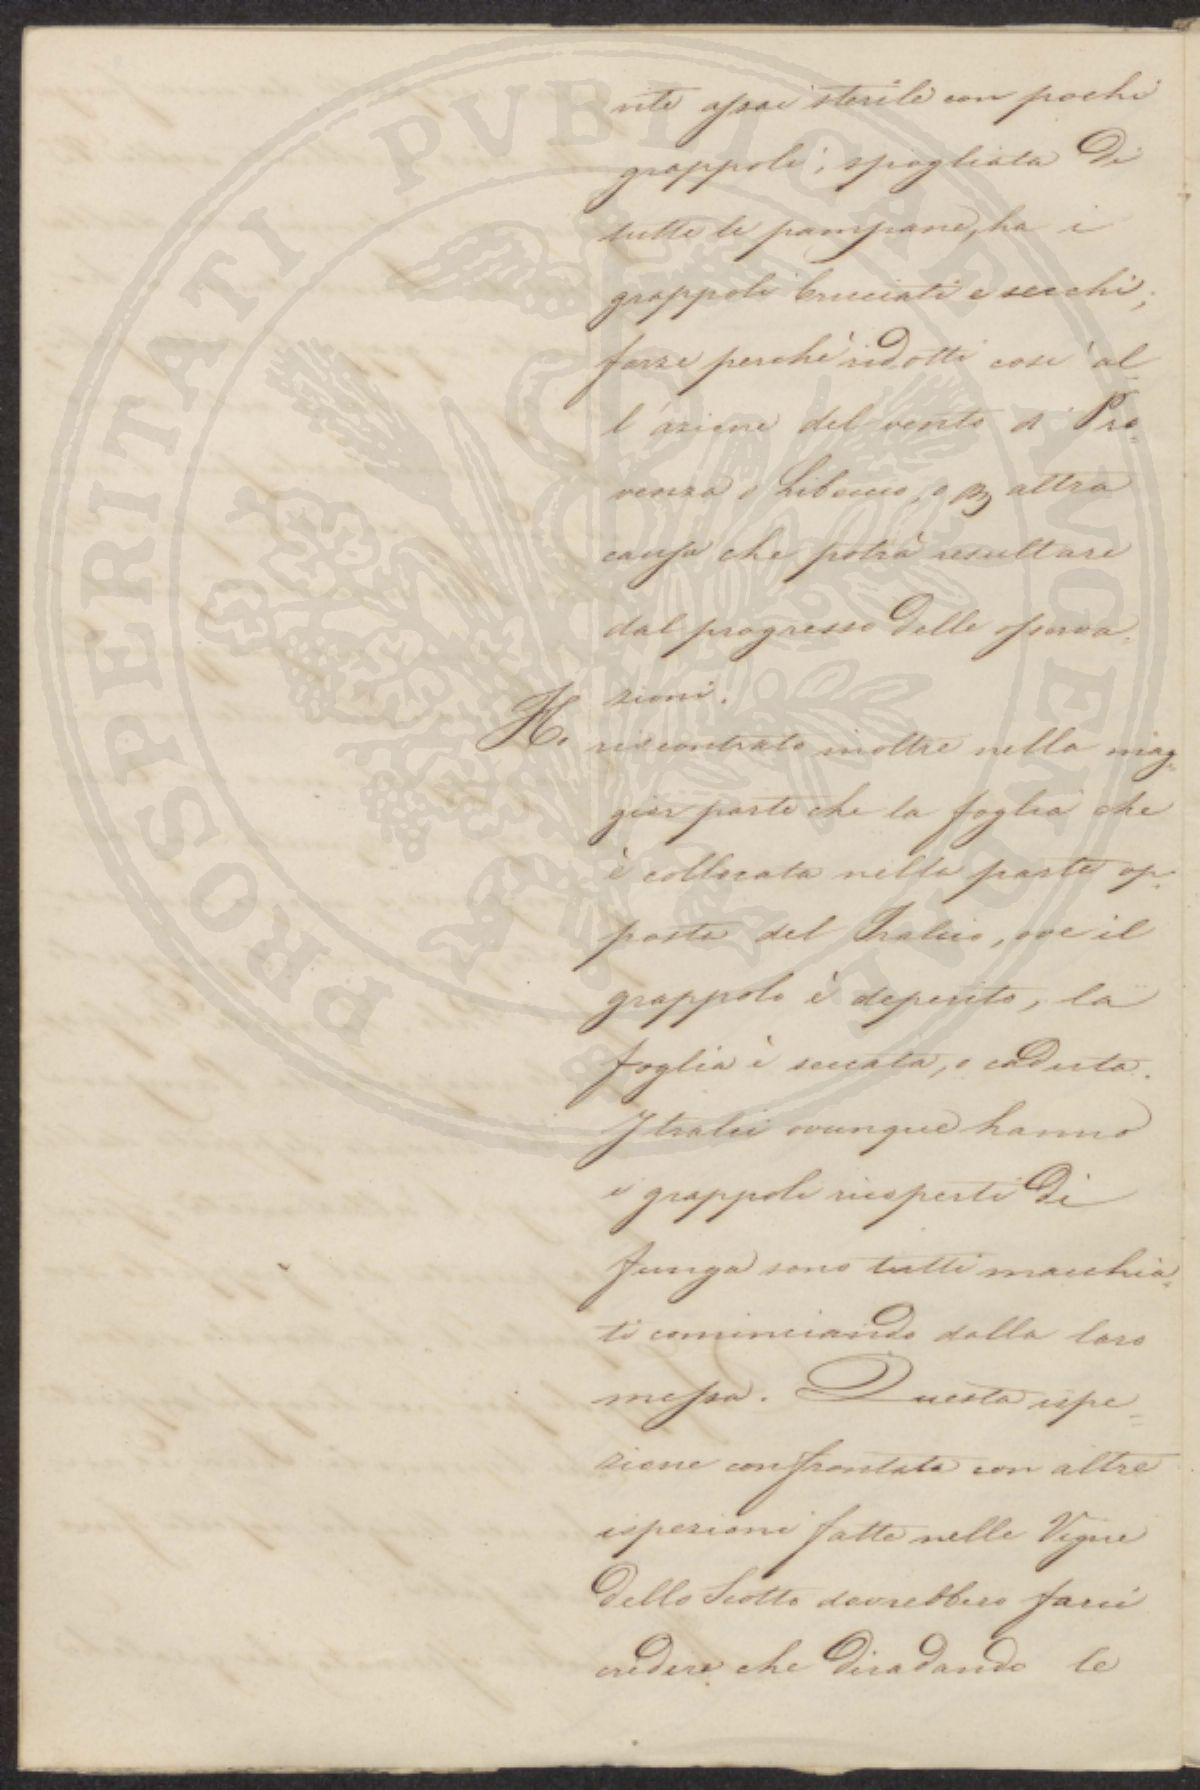 vite assai sterile con pochi
grappoli; spogliata di
tutte le pampane, ha i
grappoli bruciati e secchi;
forze perchè ridotti così al=
l'azione del vento di Pro=
venza o Libeccio, o p altra
causa che potrà resultare
dal progresso delle osserva=
zioni.
Ho riscontrato inoltre nella mag=
gior parte che la foglia che
è collocata nella parte op=
posta del Tralcio, ove il
grappolo è deperito, la
foglia è seccata, o caduta.
I tralci ovunque hanno
i grappoli ricoperti di
funga sono tutti macchia=
ti cominciando dalla loro
messa. Questa ispe=
zione confrontata con altre
ispezioni fatte nelle Vigne
dello Scotto dovrebbero farci
credere che diradando le
PROSPERITATI PVBLICAE AVGENDAE